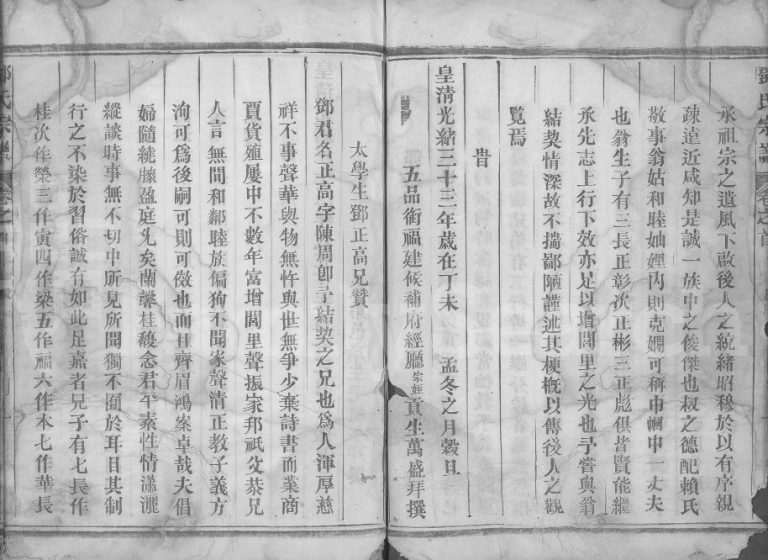 承祖宗之遺風下啟後人之統緒昭穆於以有序親
疎遠近咸知是誠一族中之俊傑也叔之德配賴氏
敬事翁姑和睦妯娌內則克嫻可稱巾幗中一丈夫
也翁生子有三長正彰次正彬三正彪俱皆賢能繼
承先志上行下效亦足以增閭里之光也予嘗與翁
結契情深故不揣鄙陋謹述其梗概以傳後人之觀
覧焉
旹
皇清光緒三十三年歲在丁未 孟冬之月穀旦
五品銜福建候補府經廳宗姪貢生萬盛拜撰
太學生鄧正高兄贊
鄧君名正高字陳周卽予結契之兄也為人渾厚慈
祥不事聲華與物無忤與世無爭少棄詩書而業商
賈貨殖屢中不數年富增閭里聲振家邦祇父恭兄
人言無間和鄰睦族偏狥不聞家聲清正教子義方
洵可為後嗣可則可傚也而且齊眉鴻案卓哉夫倡
婦隨繞膝盈庭允矣蘭馨桂馥念君平素性情瀟灑
縱談時事無不切中所見所聞獨不囿於耳目其制
行之不染於習俗誠有如此足嘉者兄子有七長作
桂次作榮三作寅四作梁五作福六作木七作華長
鄧氏宗譜 卷之首